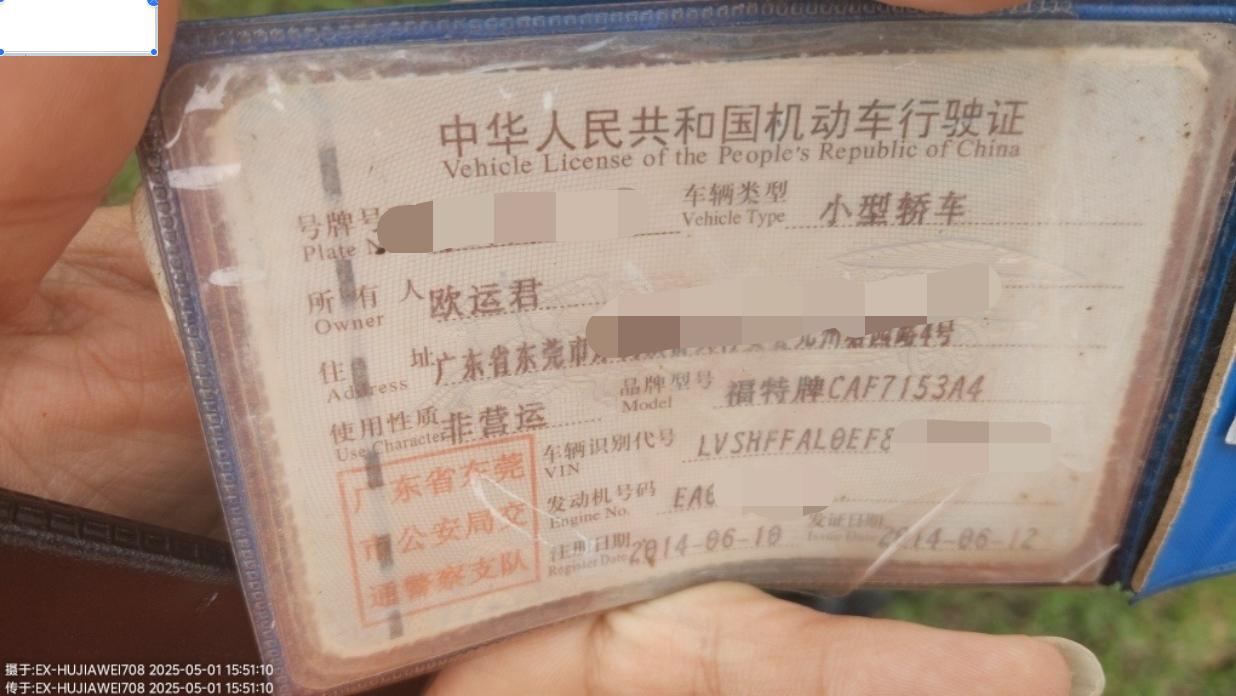 中华人民共和国机动车行驶证
Vehicle License of the People's Republic of China
号牌号
Plate N
车辆类型
Vehicle Type
小型轿车
所有人
Owner
欧运君
住址
Address
广东省东莞市
路4号
使用性质
Use Character
非营运
品牌型号
Model
福特牌CAF7153A4
车辆识别代号
VIN
LVSHFFAL0EF8
发动机号码
Engine No.
EA6
注册日期
Register Date
2014-06-10
发证日期
Issue Date
2014-06-12
广东省东莞
市公安局交
通警察支队
摄于:EX-HUJIAWEI708 2025-05-01 15:51:10
传于:EX-HUJIAWEI708 2025-05-01 15:51:10